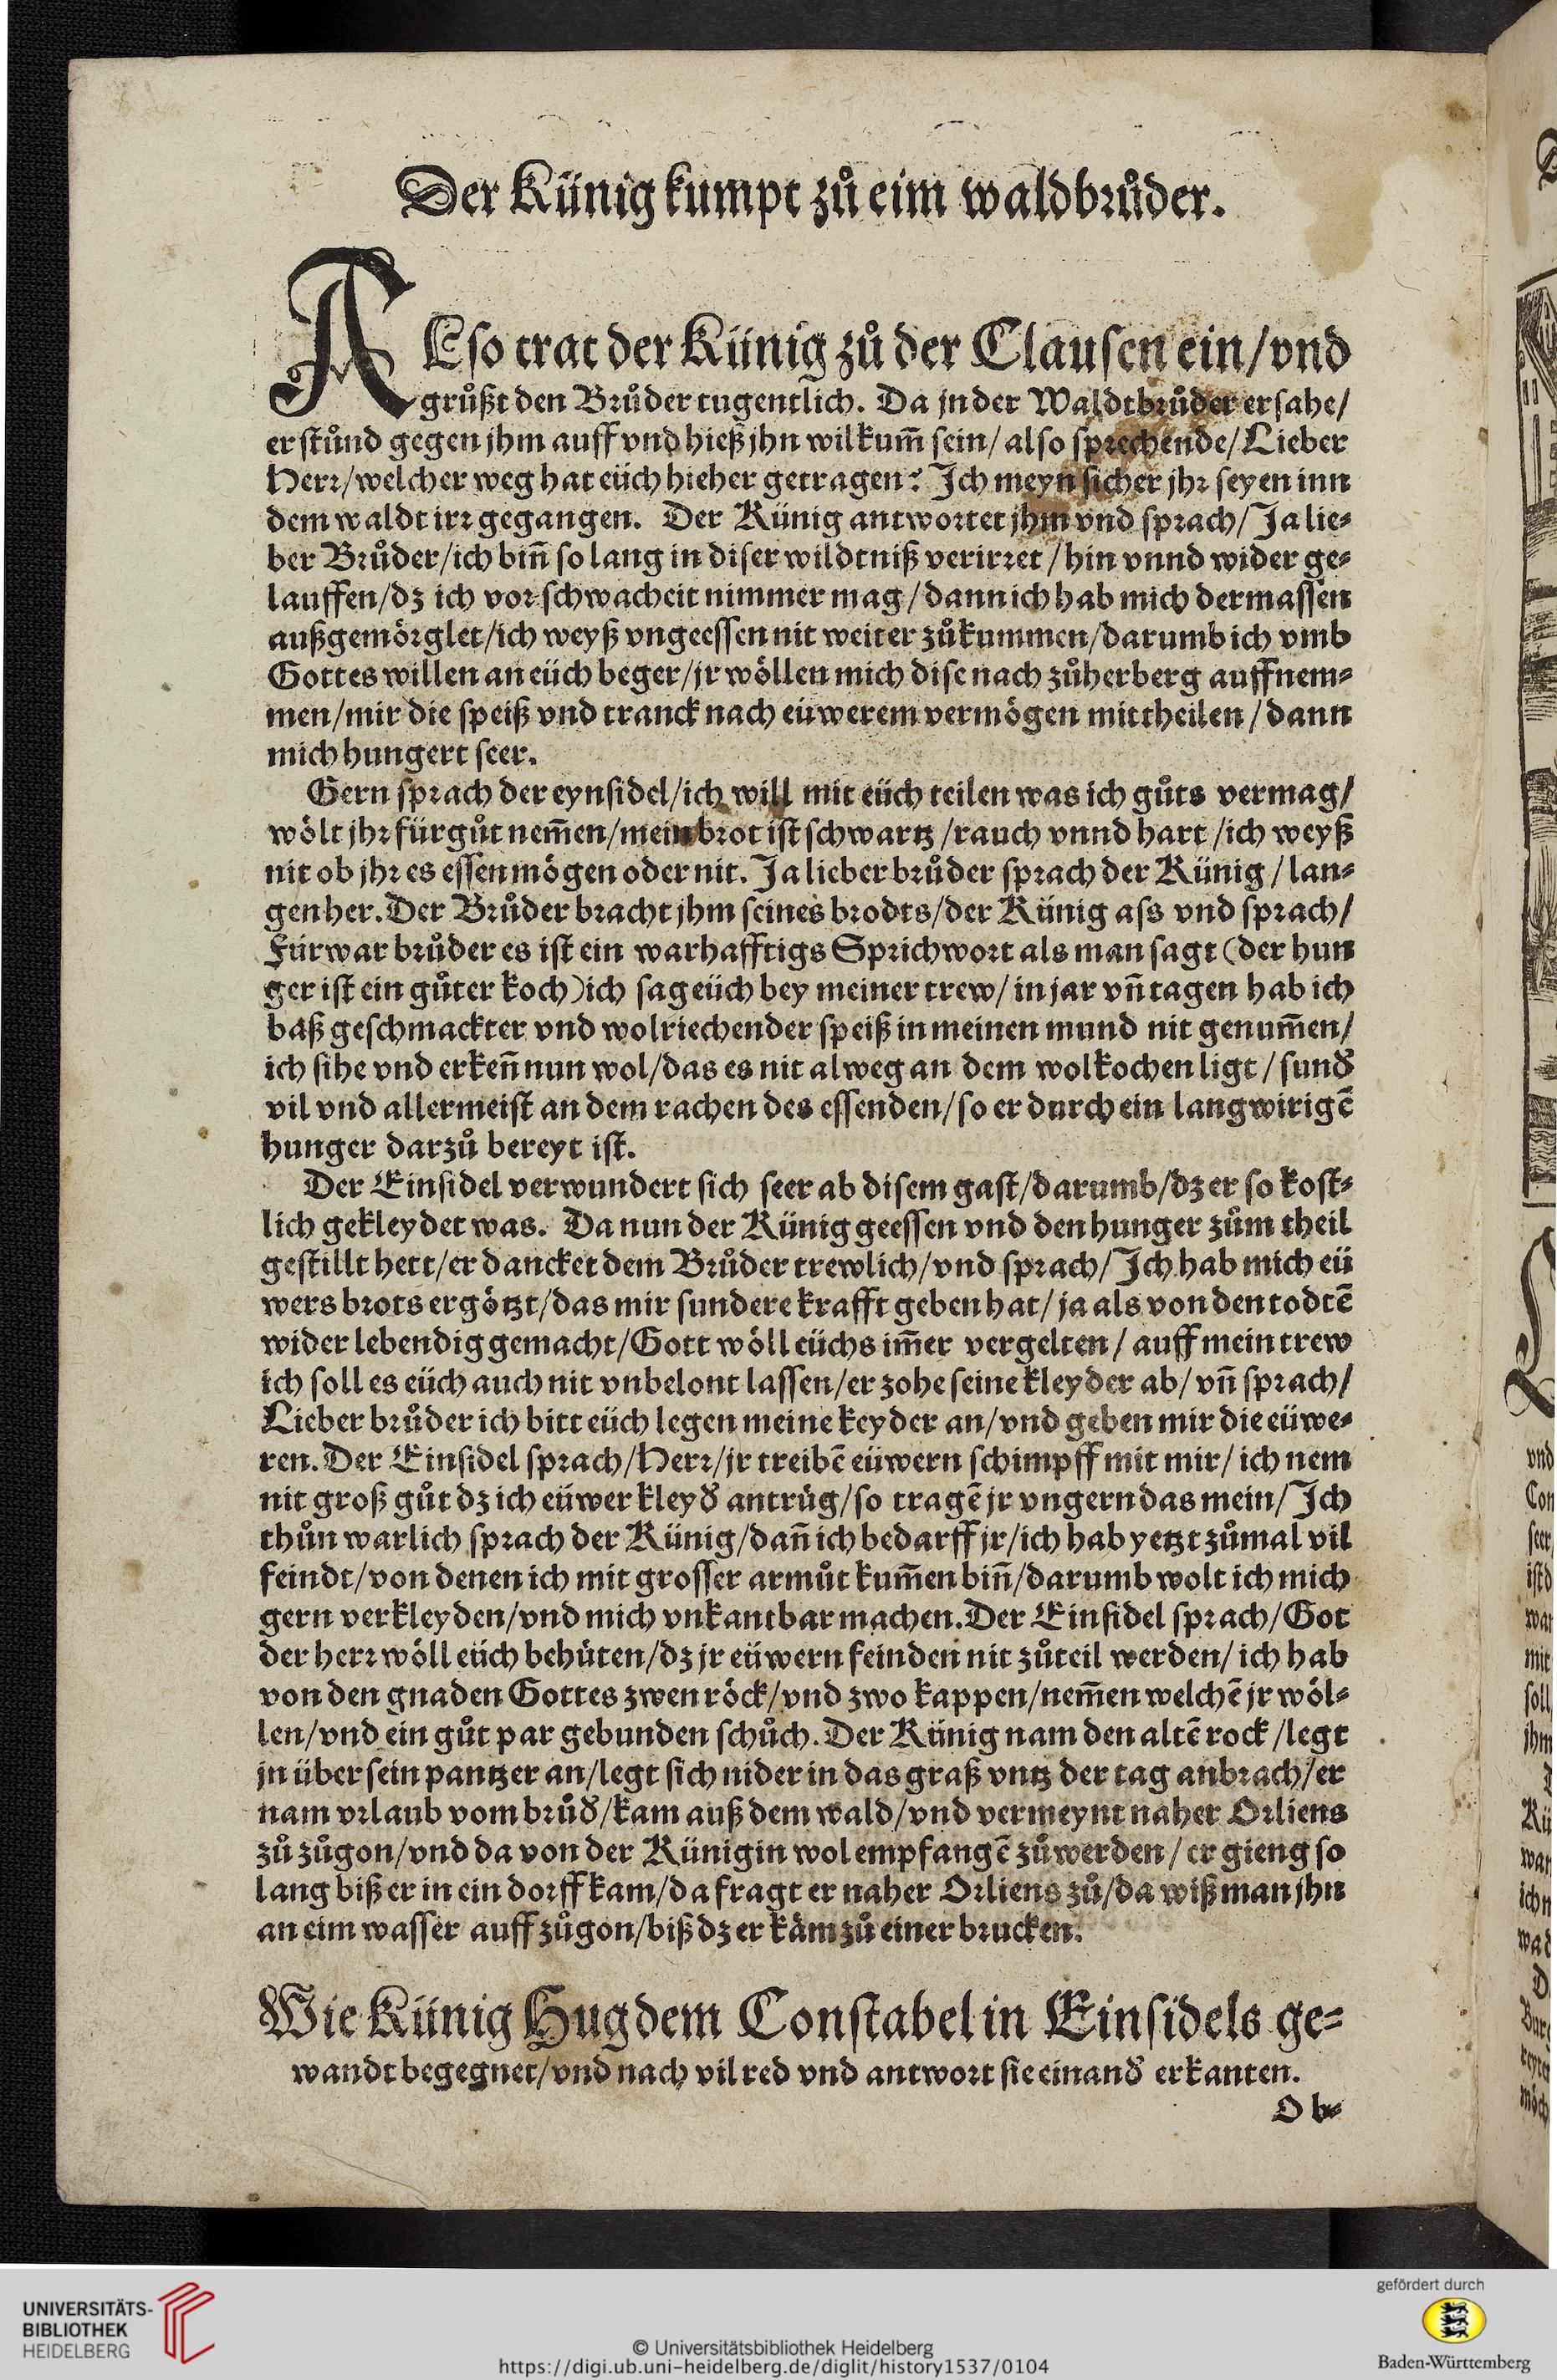 Der Künig kumpt zů eim waldbrůder.
ALso trat der Künig zů der Clausen ein/vnd
grůßt den Brůder tugentlich. Da jn der Waldtbrůder ersahe/
er stůnd gegen jhm auff vnd hieß jhn wilkum̄ sein/ also sprechende/ Lieber
Herr/welcher weg hat eüch hieher getragen? Ich meyn sicher jhr seyen inn
dem waldt irr gegangen. Der Künig antwortet jhm vnd sprach/ Ja lie-
ber Brůder/ich bin̄ so lang in diser wildtniß verirret /hin vnnd wider ge-
lauffen/dz ich vor schwacheit nimmer mag /dann ich hab mich dermassen
außgemörglet/ich weyß vngeessen nit weiter zůkummen/darumb ich vmb
Gottes willen an eüch beger/jr wöllen mich dise nach zůherberg auffnem-
men/mir die speiß vnd tranck nach eüwerem vermögen mittheilen /dann
mich hungert seer.
Gern sprach der eynsidel/ich will mit eüch teilen was ich gůts vermag/
wölt jhr für gůt nem̄en/mein brot ist schwartz /rauch vnnd hart /ich weyß
nit ob jhr es essen mögen oder nit. Ja lieber brůder sprach der Künig /lan-
gen her. Der Brůder bracht jhm seines brodts/der Künig ass vnd sprach/
Fürwar brůder es ist ein warhafftigs Sprichwort als man sagt (der hun
ger ist ein gůter koch) ich sag eüch bey meiner trew/ in jar vn̄ tagen hab ich
baß geschmackter vnd wolriechender speiß in meinen mund nit genum̄en/
ich sihe vnd erken̄ nun wol/das es nit alweg an dem wolkochen ligt /sund̛
vil vnd allermeist an dem rachen des essenden/so er durch ein langwirigē
hunger darzů bereyt ist.
Der Einsidel verwundert sich seer ab disem gast/darumb/dz er so kost-
lich gekleydet was. Da nun der Künig geessen vnd den hunger zům theil
gestillt hett/er dancket dem Brůder trewlich/vnd sprach/ Ich hab mich eü
wers brots ergötzt/das mir sundere krafft geben hat/ ja als von den todtē
wider lebendig gemacht/Gott wöll eüchs im̄er vergelten/ auff mein trew
ich soll es eüch auch nit vnbelont lassen/er zohe seine kleyder ab/ vn̄ sprach/
Lieber brůder ich bitt eüch legen meine keyder an/vnd geben mir die eüwe-
ren. Der Einsidel sprach/Herr/jr treibē eüwern schimpff mit mir/ ich nem
nit groß gůt dz ich eüwer kleyd̛ antrüg/so tragē jr vngern das mein/ Ich
thůn warlich sprach der Künig/dan̄ ich bedarff jr/ich hab yetzt zůmal vil
feindt/von denen ich mit grosser armůt kum̄en bin̄/darumb wolt ich mich
gern verkleyden/vnd mich vnkantbar machen. Der Einsidel sprach/Got
der herr wöll eüch behüten/dz jr eüwern feinden nit zůteil werden/ ich hab
von den gnaden Gottes zwen röck/vnd zwo kappen/nem̄en welchē jr wöl-
len/vnd ein gůt par gebunden schůch. Der Künig nam den altē rock /legt
jn über sein pantzer an/legt sich nider in das graß vntz der tag anbrach/er
nam vrlaub vom brůd̛/kam auß dem wald/vnd vermeynt naher Orliens
zů zůgon/vnd da von der Künigin wol empfangē zůwerden/ er gieng so
lang biß er in ein dorff kam/da fragt er naher Orliens zů/da wiß man jhn
an eim wasser auff zůgon/biß dz er käm zů einer brucken.
Wie Künig Hug dem Constabel in Einsidels ge-
wandt begegnet/vnd nach vil red vnd antwort sie einand̛ erkanten.
Ob-
vnd
Con
seer
ist d
war
mit
soll
jhm
Kü
wan
ich n
D
möch
UNIVERSITÄTS-
BIBLIOTHEK
HEIDELBERG
© Universitätsbibliothek Heidelberg
https://digi.ub.uni-heidelberg.de/diglit/history1537/0104
gefördert durch
Baden-Württemberg